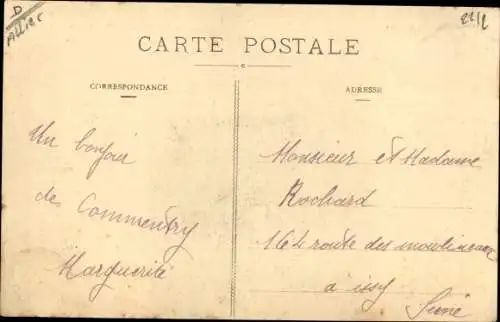 D
Allier
2212
CARTE POSTALE
CORRESPONDANCE
ADRESSE
Un bonjour
de Commentry
Marguerite
Monsieur et Madame
Rochard
164 route des moulineaux
à issy
Seine